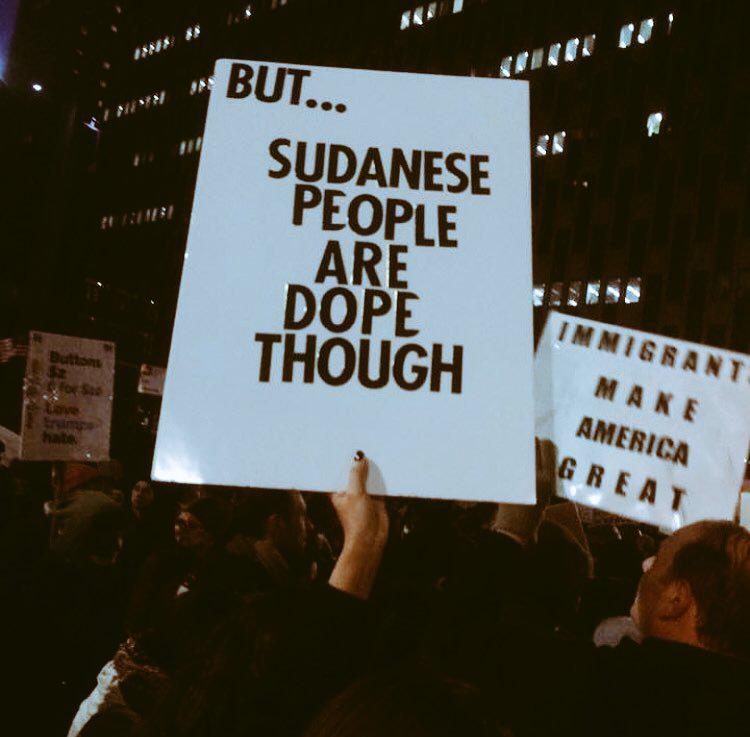 BUT...
SUDANESE
PEOPLE
ARE
DOPE
THOUGH
IMMIGRANT
MAKE
AMERICA
GREAT
Buttons
$2
Love
trumps
hate.